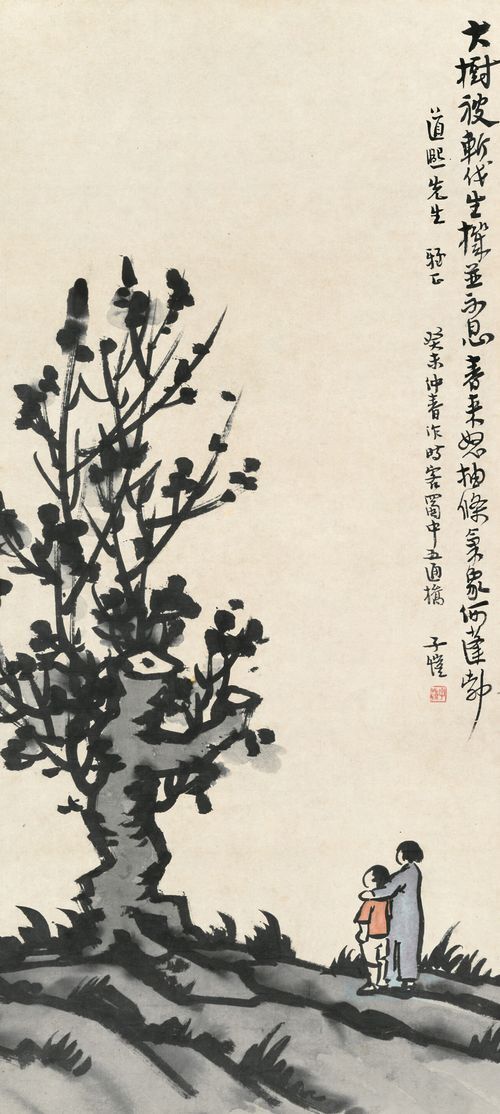 大樹被斬伐生機並不息春来怒抽條氣象何蓬勃
道熙先生 雅正
癸未仲春作時客蜀中五通橋 子愷